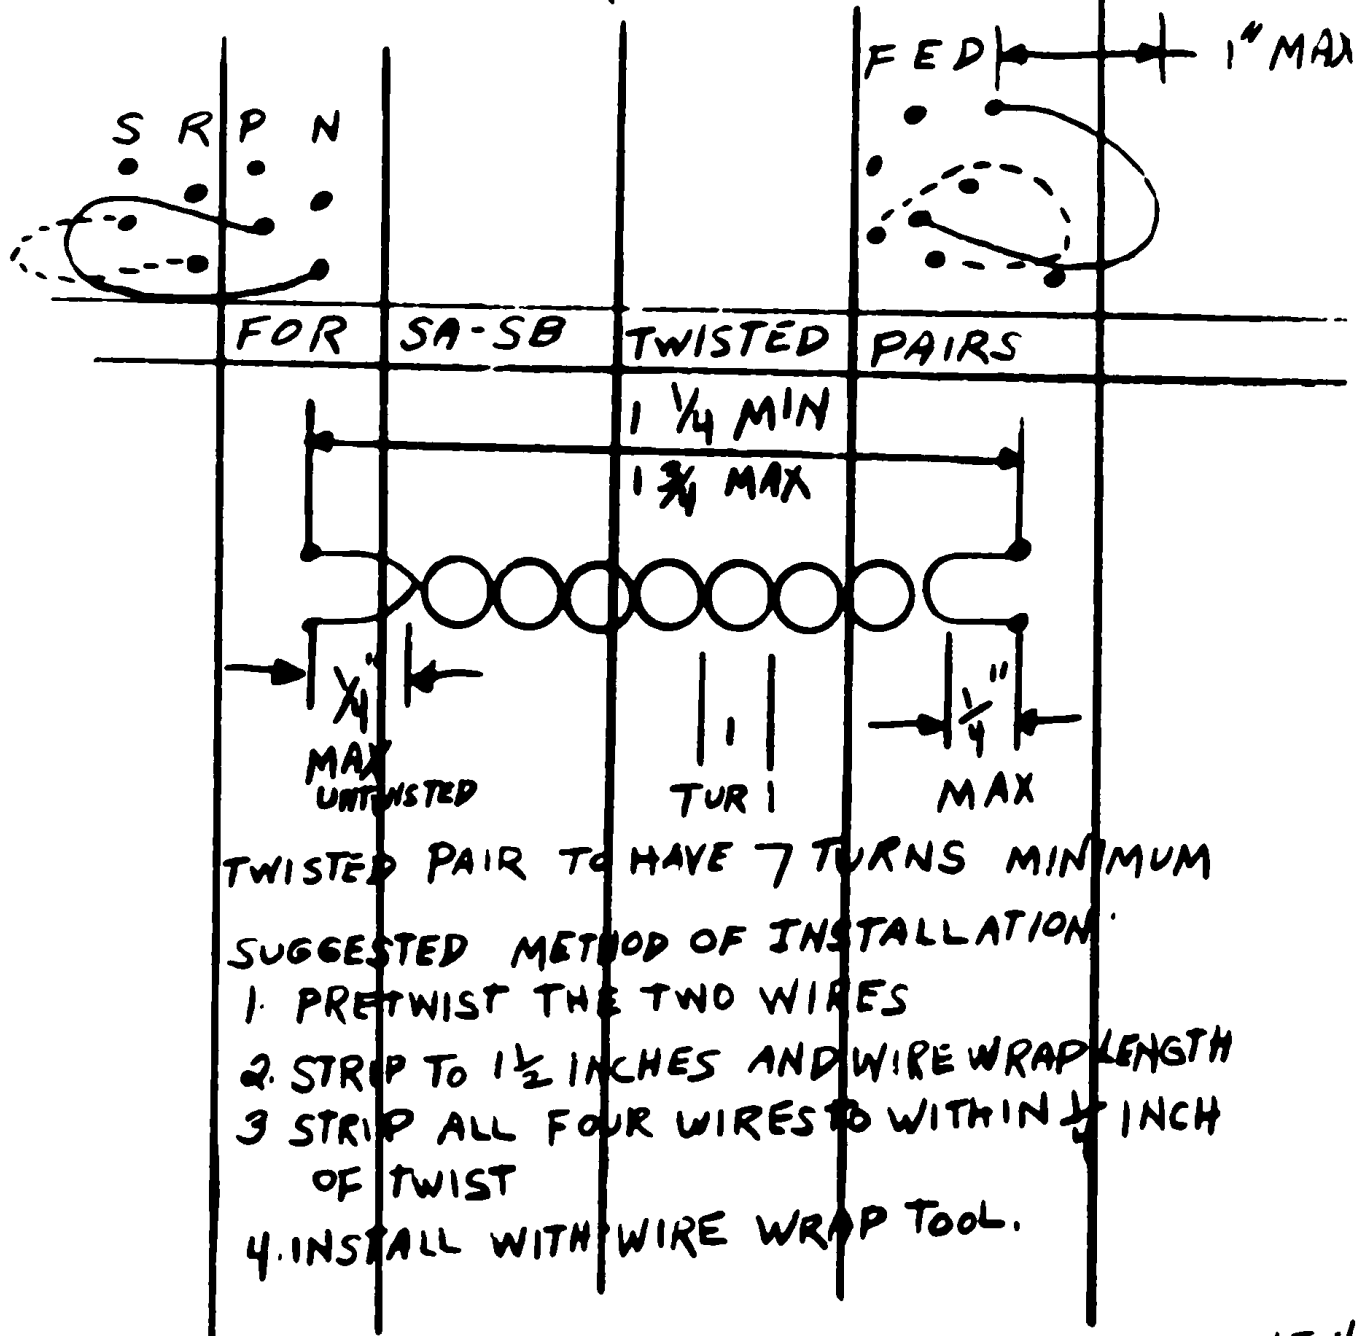 F E D 1" MAX
S R P N
FOR SA-SB TWISTED PAIRS
1 1/4 MIN
1 3/4 MAX
1/4" 1 1/4"
MAX MAX
UNTWISTED TUR
TWISTED PAIR TO HAVE 7 TURNS MINIMUM
SUGGESTED METHOD OF INSTALLATION
1. PRETWIST THE TWO WIRES
2. STRIP TO 1 1/2 INCHES AND WIRE WRAP LENGTH
3 STRIP ALL FOUR WIRES TO WITHIN 1/4 INCH
OF TWIST
4. INSTALL WITH WIRE WRAP TOOL.